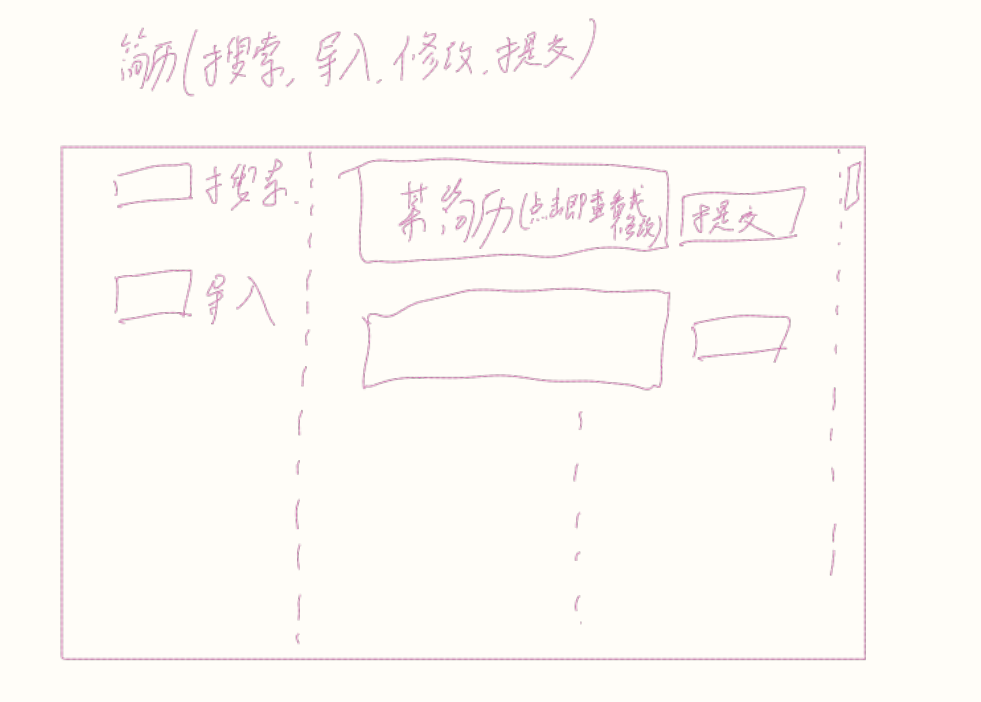 简历(搜索,导入,修改,提交)
搜索.
某简历(点击即查看或
修改)
提交
导入